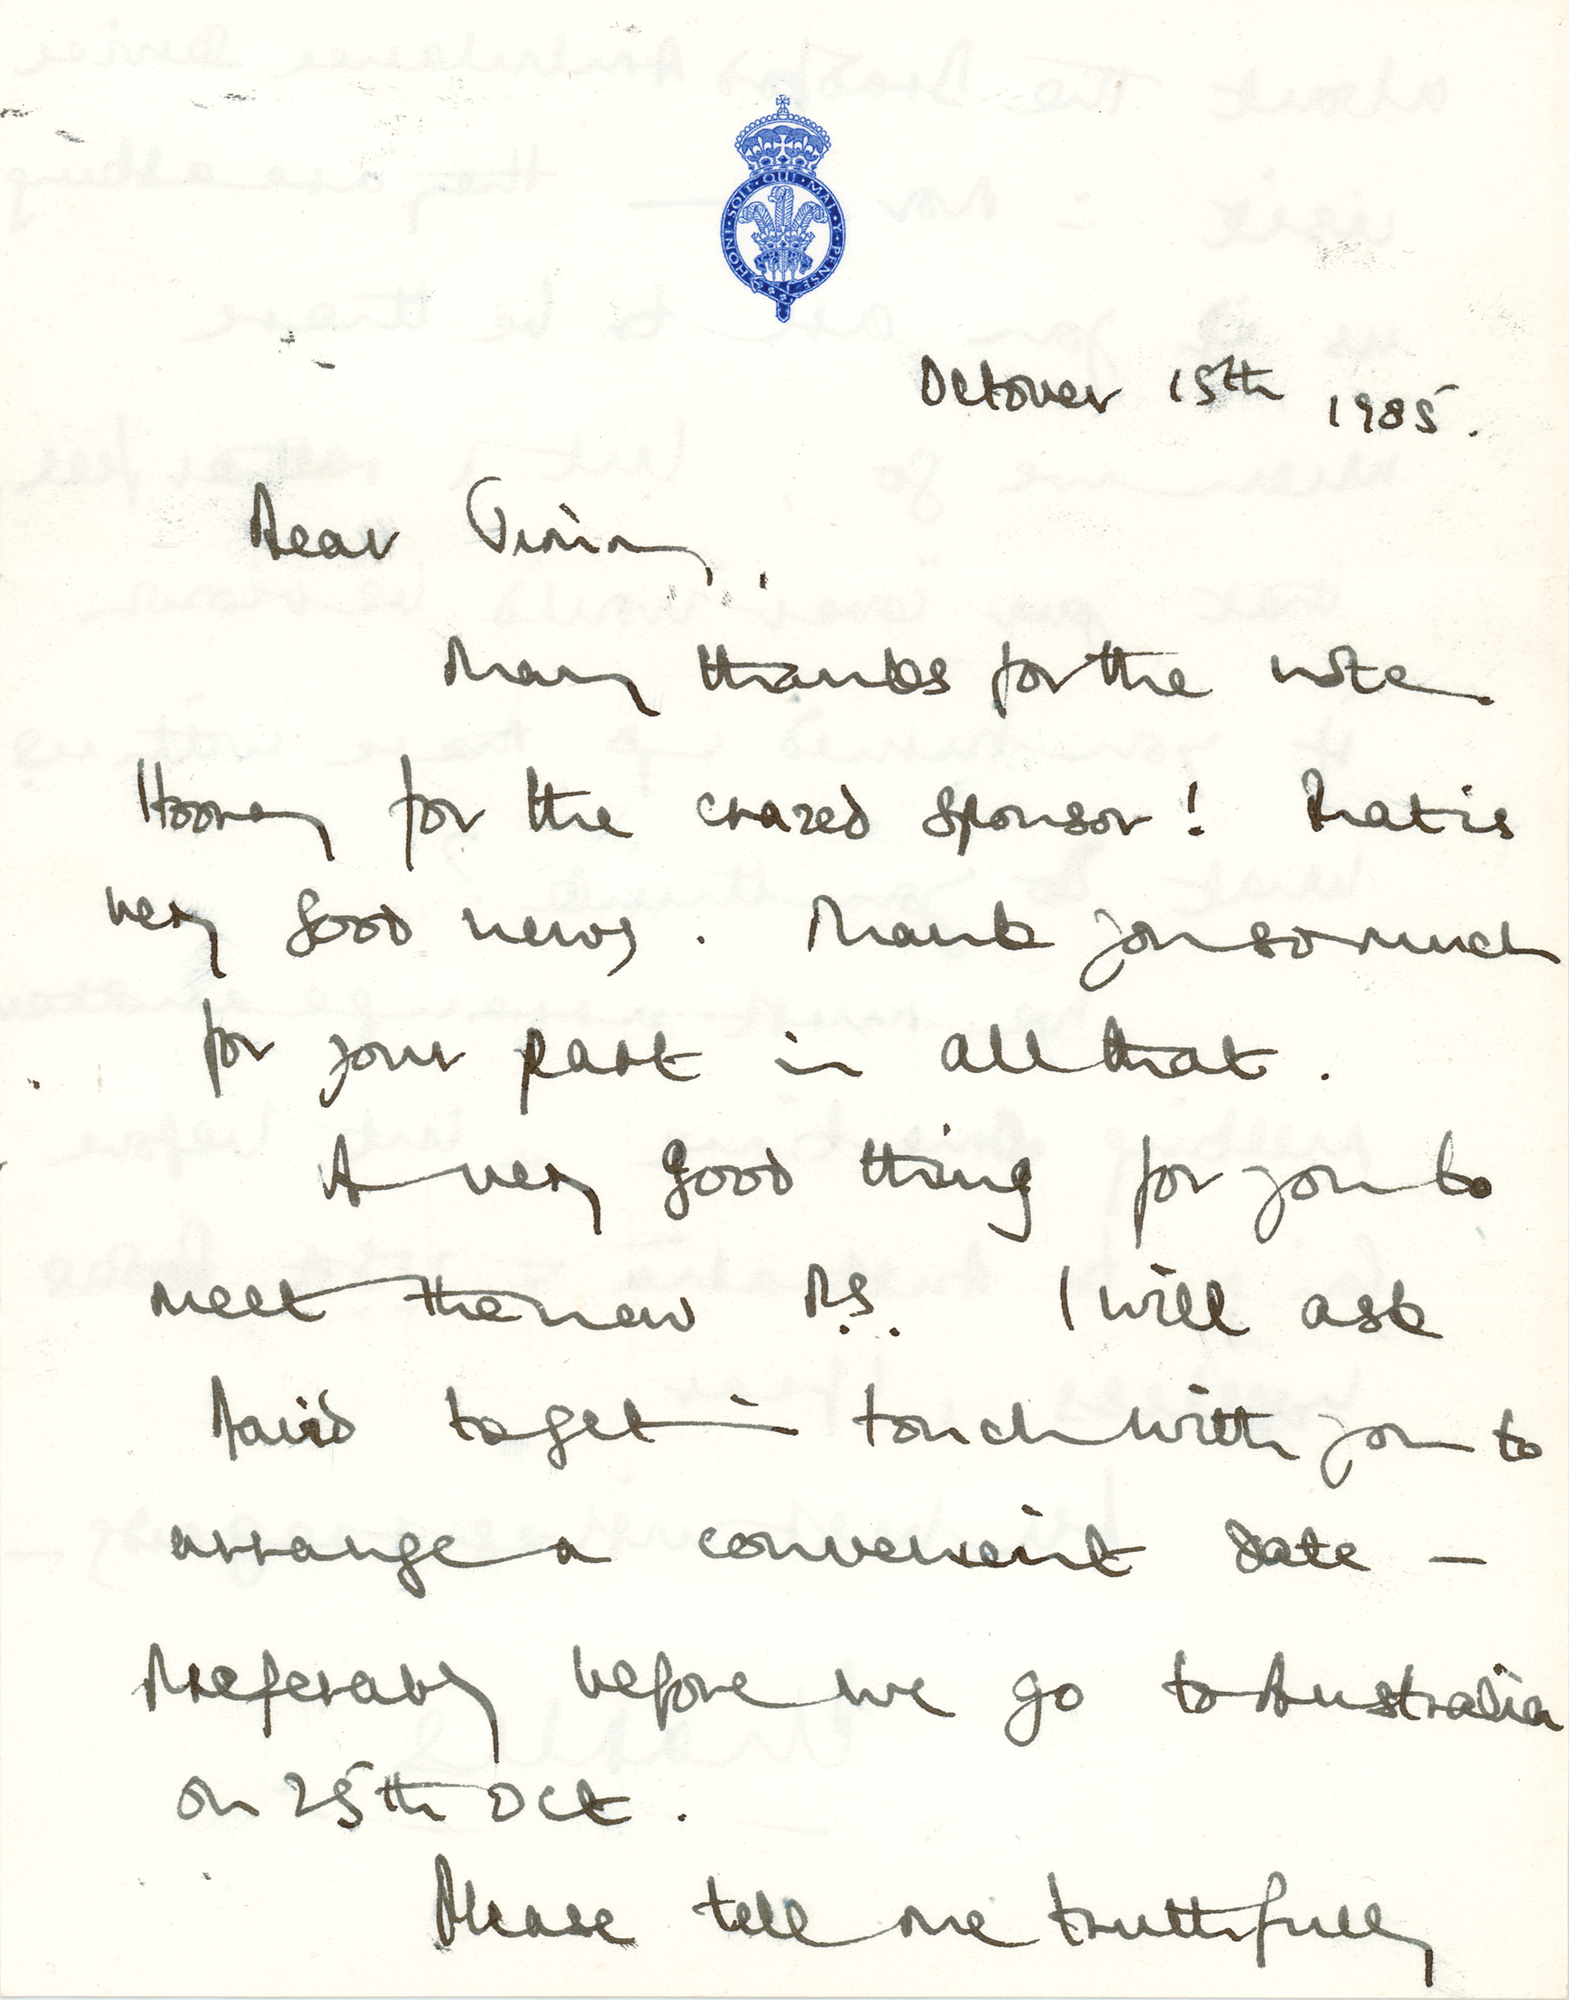 HONI · SOIT · QUI · MAL · Y · PENSE
October 15th 1985.
Dear Jimmy,
Many thanks for the note.
Hooray for the crazed sponsor! That is
very good news. Thank you so much
for your part in all that.
A very good thing for you to
meet the new P.S. I will ask
David to get in touch with you to
arrange a convenient date —
preferably before we go to Australia
on 25th Oct.
Please tell me truthfully